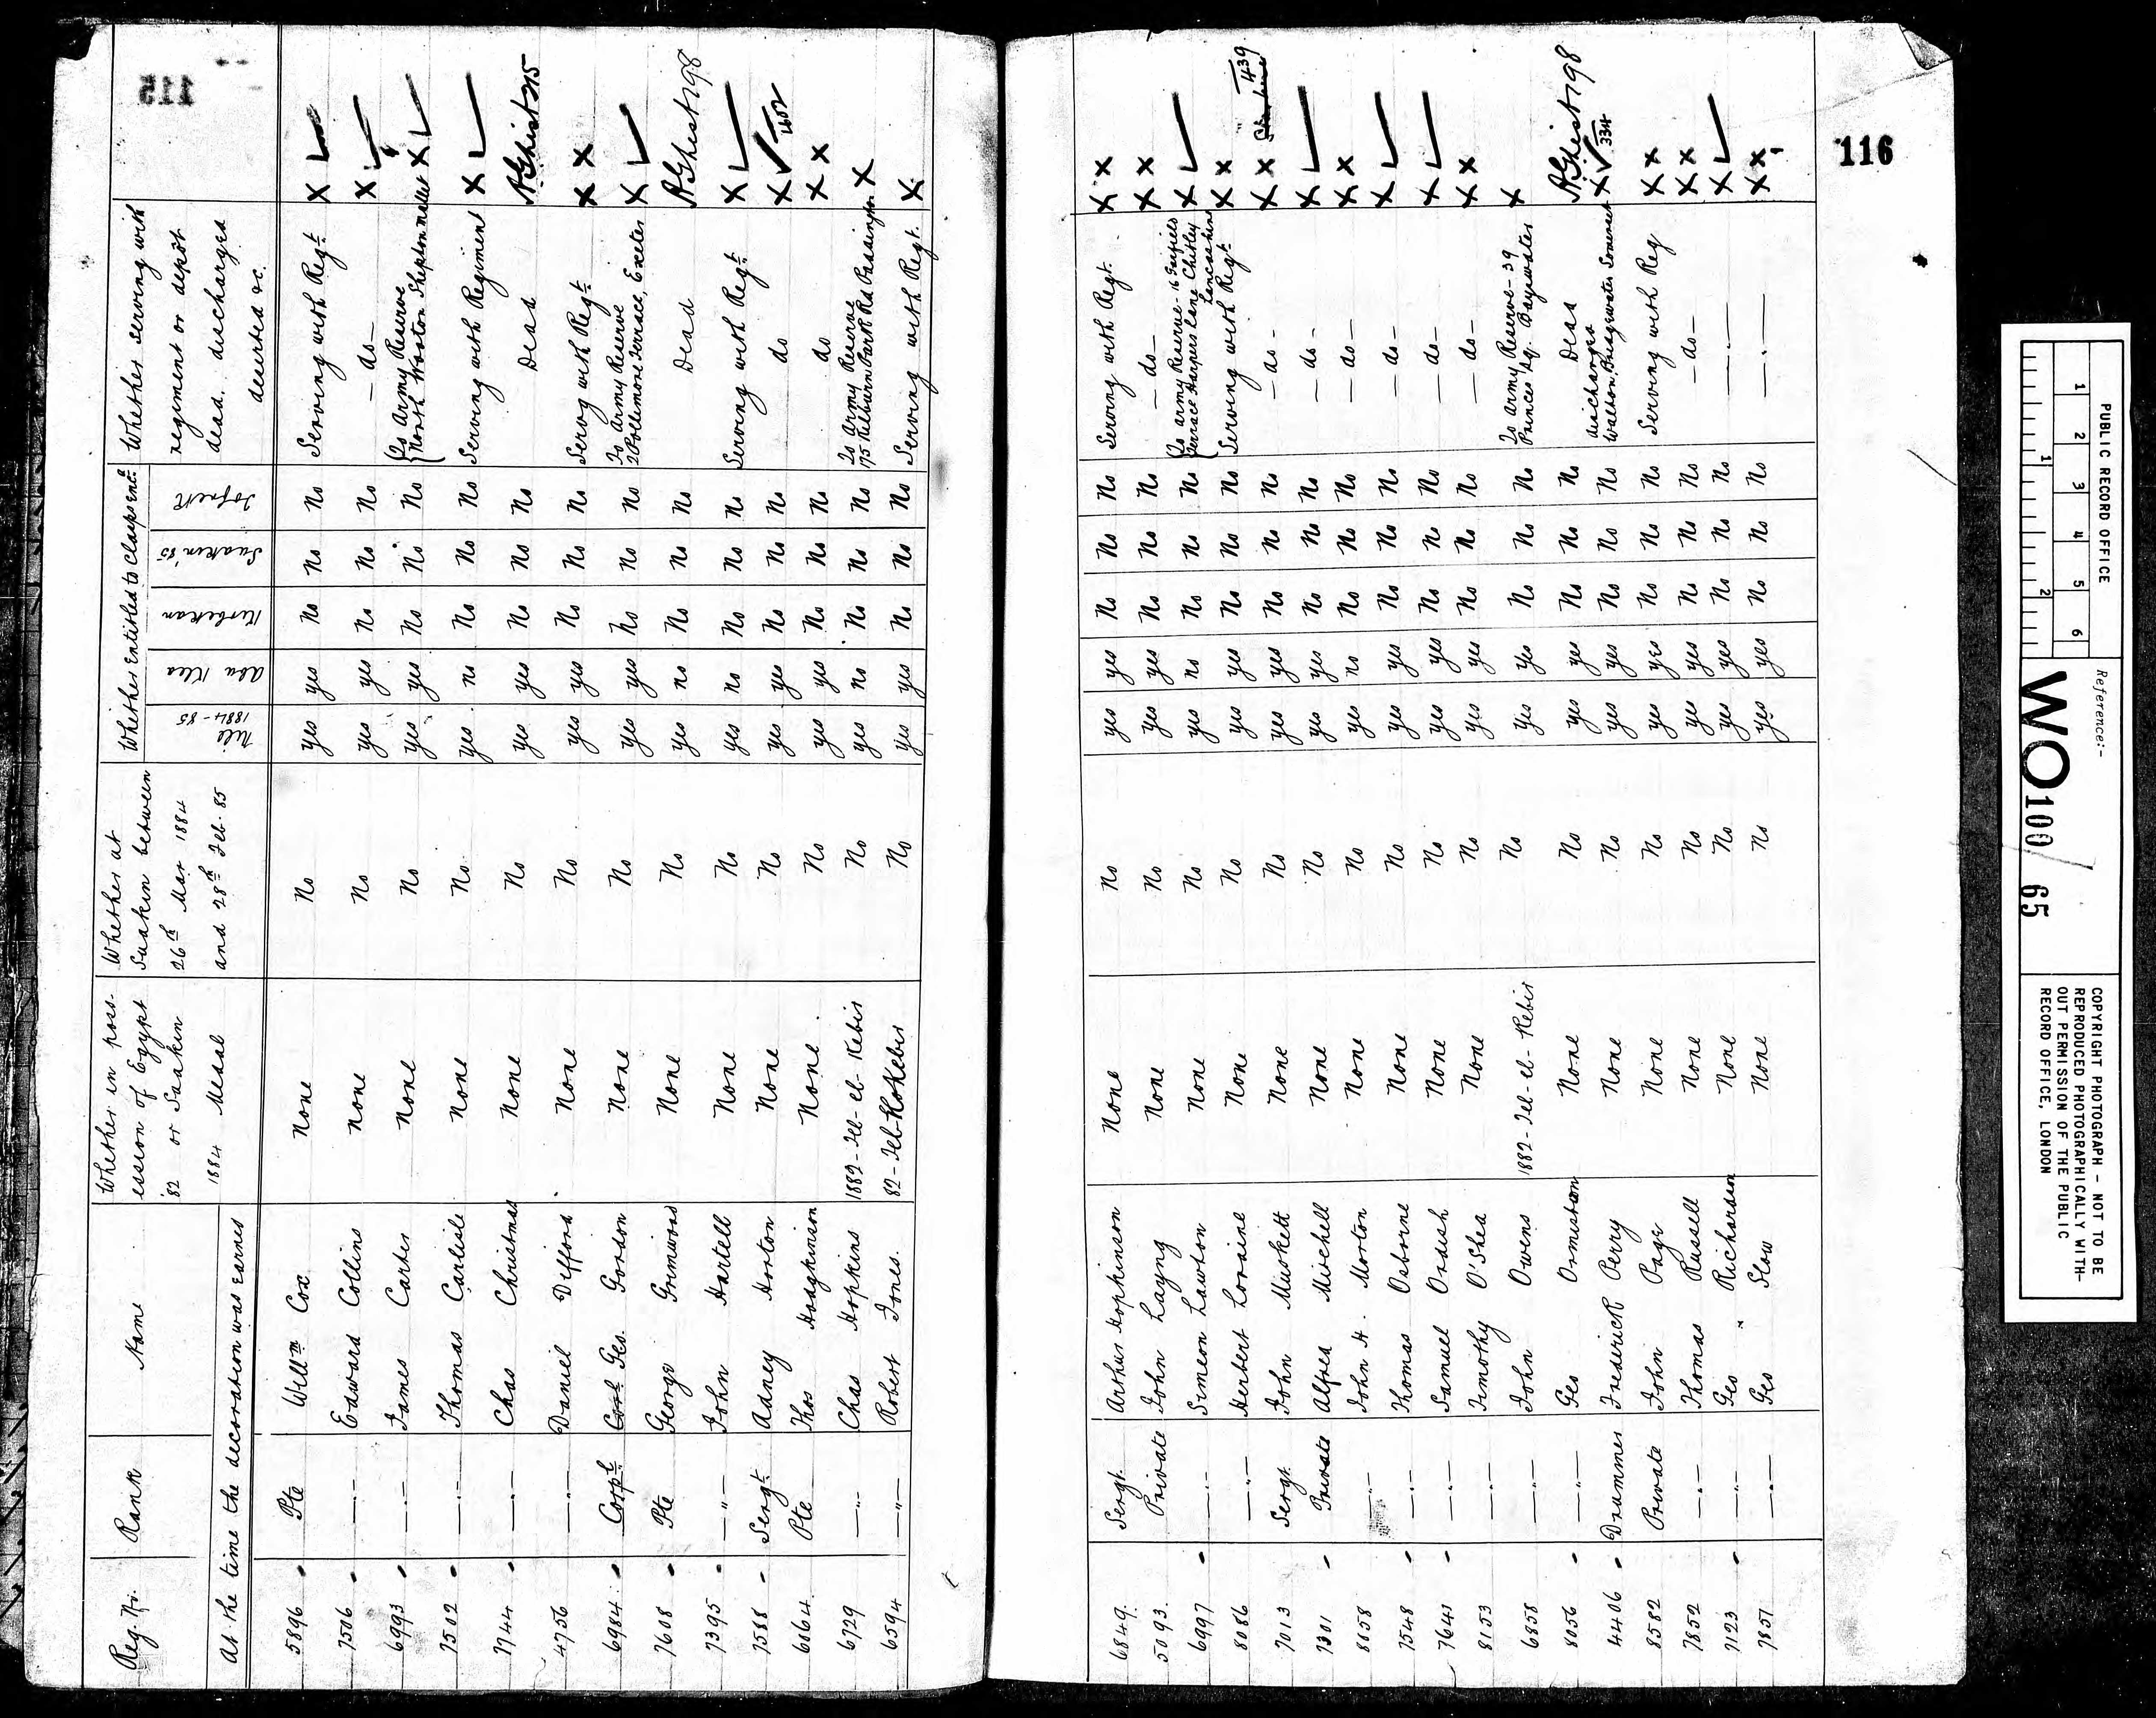 115
Reg. No. Rank Name Whether in poss- ession of Egypt '82 or Suakin 1884 Medal Whether at Suakin between 26th Mar 1884 and 28th Feb. 85 Whether Entitled to Clasps Entd. Whether serving with regiment or depôt dead, discharged deserted &c.
At the time the decoration was earned Nile 1884-85 Abu Klea Kirbekan Suakin '85 Tofrek
5896 Pte Willm Cox None No yes yes No No No Serving with Regt. X
7506 —"— Edward Collins None No yes yes No No No —do— X
6993 —"— James Carter None No yes yes No No No To Army Reserve North Wooton Shepton Mallet X X
7502 —"— Thomas Carlisle None No yes no No No No Serving with Regiment X
7744 —"— Chas Christmas None No yes yes No No No Dead
4756 —"— Daniel Difford None No yes yes No No No Servg with Regt. X X
6984 Corpl. Corl Geo. Gordon None No yes yes No No No To Army Reserve 2 Poltimore Terrace, Exeter X
7608 Pte George Grimwood None No yes no No No No Dead
7395 —"— John Hartell None No yes No No No No Serving with Regt. X
7588 Sergt. Adney Horton None No yes yes No No No do X 1602
6064 Pte Thos Hodgkinson None No yes yes No No No do X X
6729 —"— Chas Hopkins 1882-Tel-el-Kebir No yes no No No No To Army Reserve 175 Kilburn Park Rd Paddington X
6594 —"— Robert Jones. 82-Tel-Kebir No yes yes No No No Serving with Regt. X
116
6849. Sergt. Arthur Hopkinson None No yes yes No No No Serving with Regt. X X
5093. Private John Layng None No yes yes No No No —do— X X
6997 —"— Simeon Lawton None No yes no No No No To Army Reserve-16 Terrace Harpers Lane Lancashire X
8086 —"— Herbert Lorraine None No yes yes No No No Serving with Regt. X X
7013 Sergt John Muskett None No yes yes No No No —do— X X 439
7301 Private Alfred Mitchell None No yes yes No No No —do— X
8658 —"— John H. Morton None No yes no No No No —do— X X
7548 —"— Thomas Osborne None No yes yes No No No —do— X
7641 —"— Samuel Ordish None No yes yes No No No —do— X
8153 —"— Timothy O'Shea None No yes yes No No No —do— X X
6858 —"— John Owens 1882-Tel-el-Kebir No yes yes No No No To Army Reserve-39 Princes Sq. Bayswater X
8056 —"— Geo Ormiston None No yes yes No No No Dead
4406 Drummer Frederick Perry None No yes yes No No No discharged Walton, Bridgewater Somerset X 334
8582 Private John Page None No yes yes No No No Serving with Reg X X
7852 —"— Thomas Russell None No yes yes No No No —do— X X
7123 —"— Geo Richardson None No yes yes No No No —"— X
7857 —"— Geo Slow None No yes yes No No No —"— X X
PUBLIC RECORD OFFICE
1 2 3 4 5 6
1 2
Reference:-
WO 100 / 65
COPYRIGHT PHOTOGRAPH - NOT TO BE
REPRODUCED PHOTOGRAPHICALLY WITH-
OUT PERMISSION OF THE PUBLIC
RECORD OFFICE, LONDON